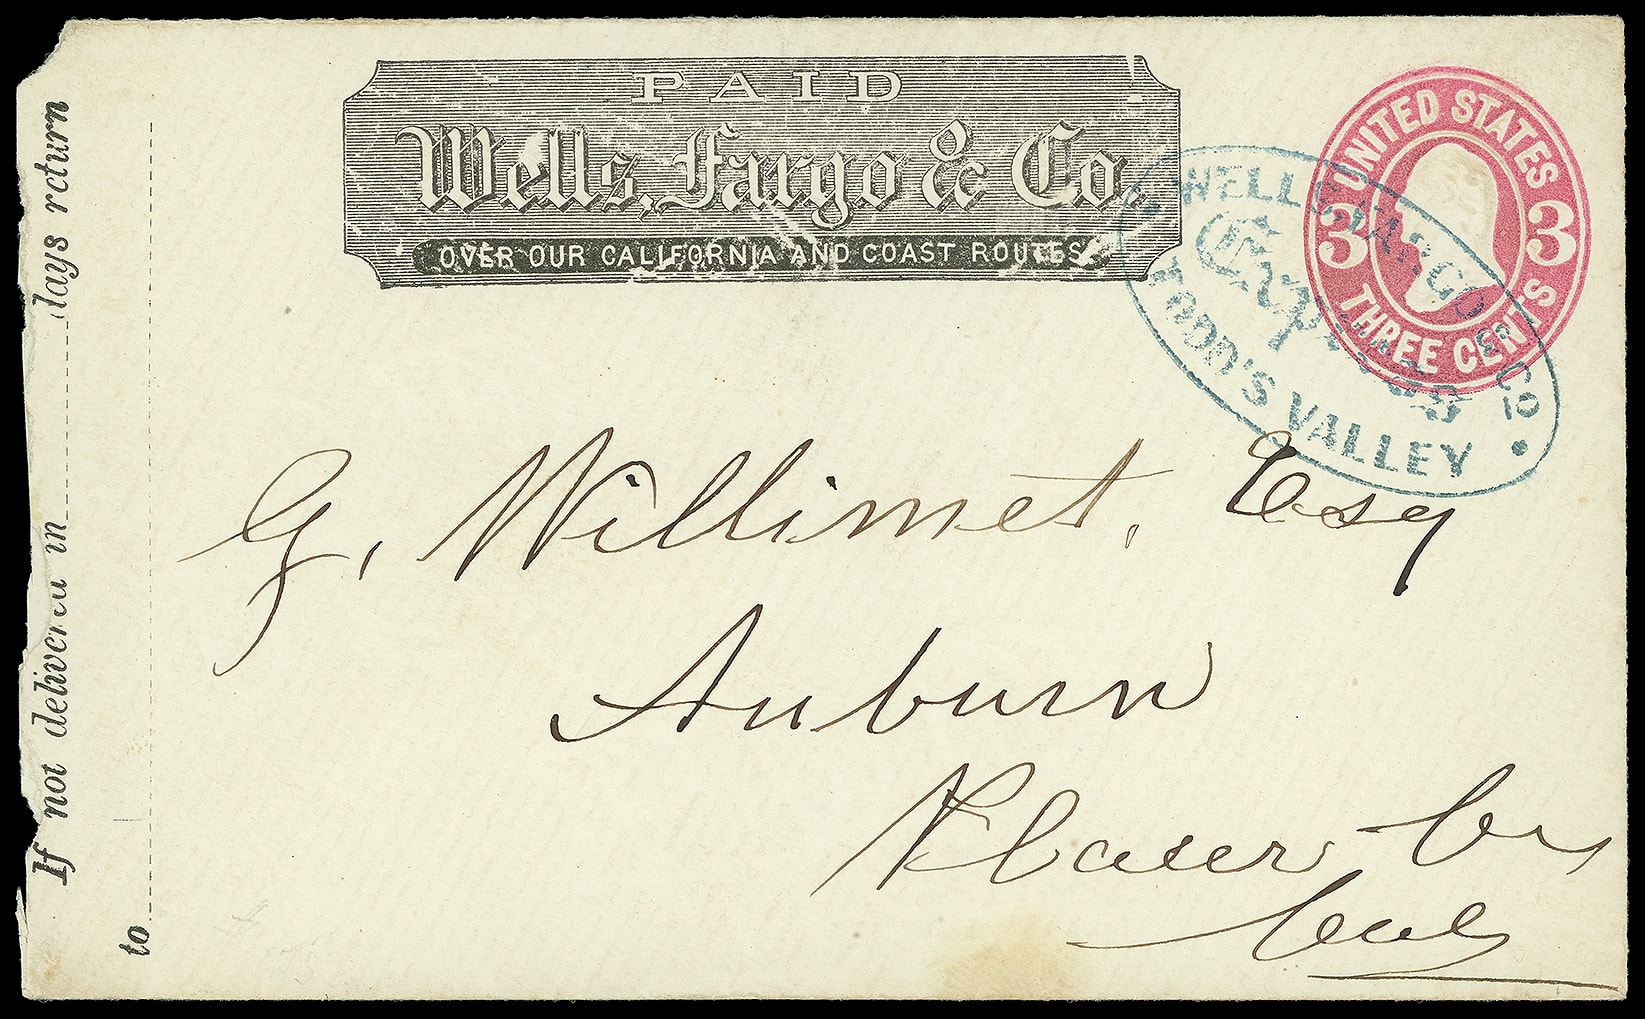 PAID
Wells, Fargo & Co.
OVER OUR CALIFORNIA AND COAST ROUTES.
UNITED STATES
3 3
THREE CENTS
WELLS, FARGO & CO
Express
TODD'S VALLEY
If not delivered in days return
to
G. Willimet, Esq
Auburn
Placer Co
Cal